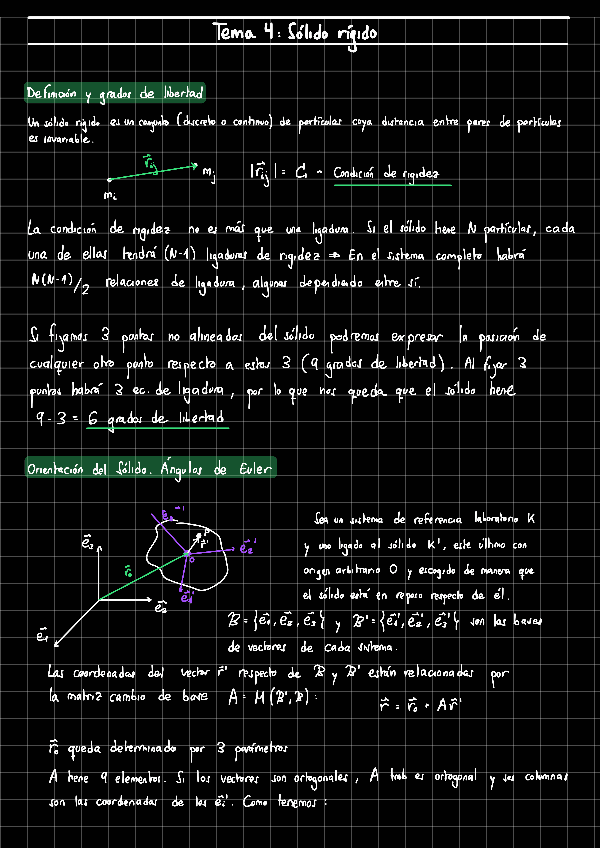 Tema 4: Sólido rígido
Definición y grados de libertad
Un sólido rígido es un conjunto (discreto o continuo) de partículas cuya distancia entre pares de partículas
es invariable.
r⃗ij mj |r⃗ij| = Cᵢ - Condición de rigidez
mi
La condición de rigidez no es más que una ligadura. Si el sólido tiene N partículas, cada
una de ellas tendrá (N-1) ligaduras de rigidez ⇒ En el sistema completo habrá
N(N-1)/2 relaciones de ligadura, algunas dependiendo entre sí.
Si fijamos 3 puntos no alineados del sólido podremos expresar la posición de
cualquier otro punto respecto a estos 3 (9 grados de libertad). Al fijar 3
puntos habrá 3 ec. de ligadura, por lo que nos queda que el sólido tiene
9 - 3 = 6 grados de libertad
Orientación del Sólido. Ángulos de Euler
Sea un sistema de referencia laboratorio K
y uno ligado al sólido K', este último con
origen arbitrario O y escogido de manera que
el sólido está en reposo respecto de él.
e⃗₃ e⃗₃' P r⃗' O e⃗₂' r⃗₀ e⃗₁' e⃗₂ e⃗₁
B = {e⃗₁, e⃗₂, e⃗₃} y B' = {e⃗₁', e⃗₂', e⃗₃'} son las bases
de vectores de cada sistema.
Las coordenadas del vector r⃗' respecto de B y B' están relacionadas por
la matriz cambio de base A = M(B', B):
r⃗ = r⃗₀ + A r⃗'
r⃗₀ queda determinado por 3 parámetros
A tiene 9 elementos. Si los vectores son ortogonales, A tamb es ortogonal y sus columnas
son las coordenadas de los e⃗ᵢ'. Como tenemos: